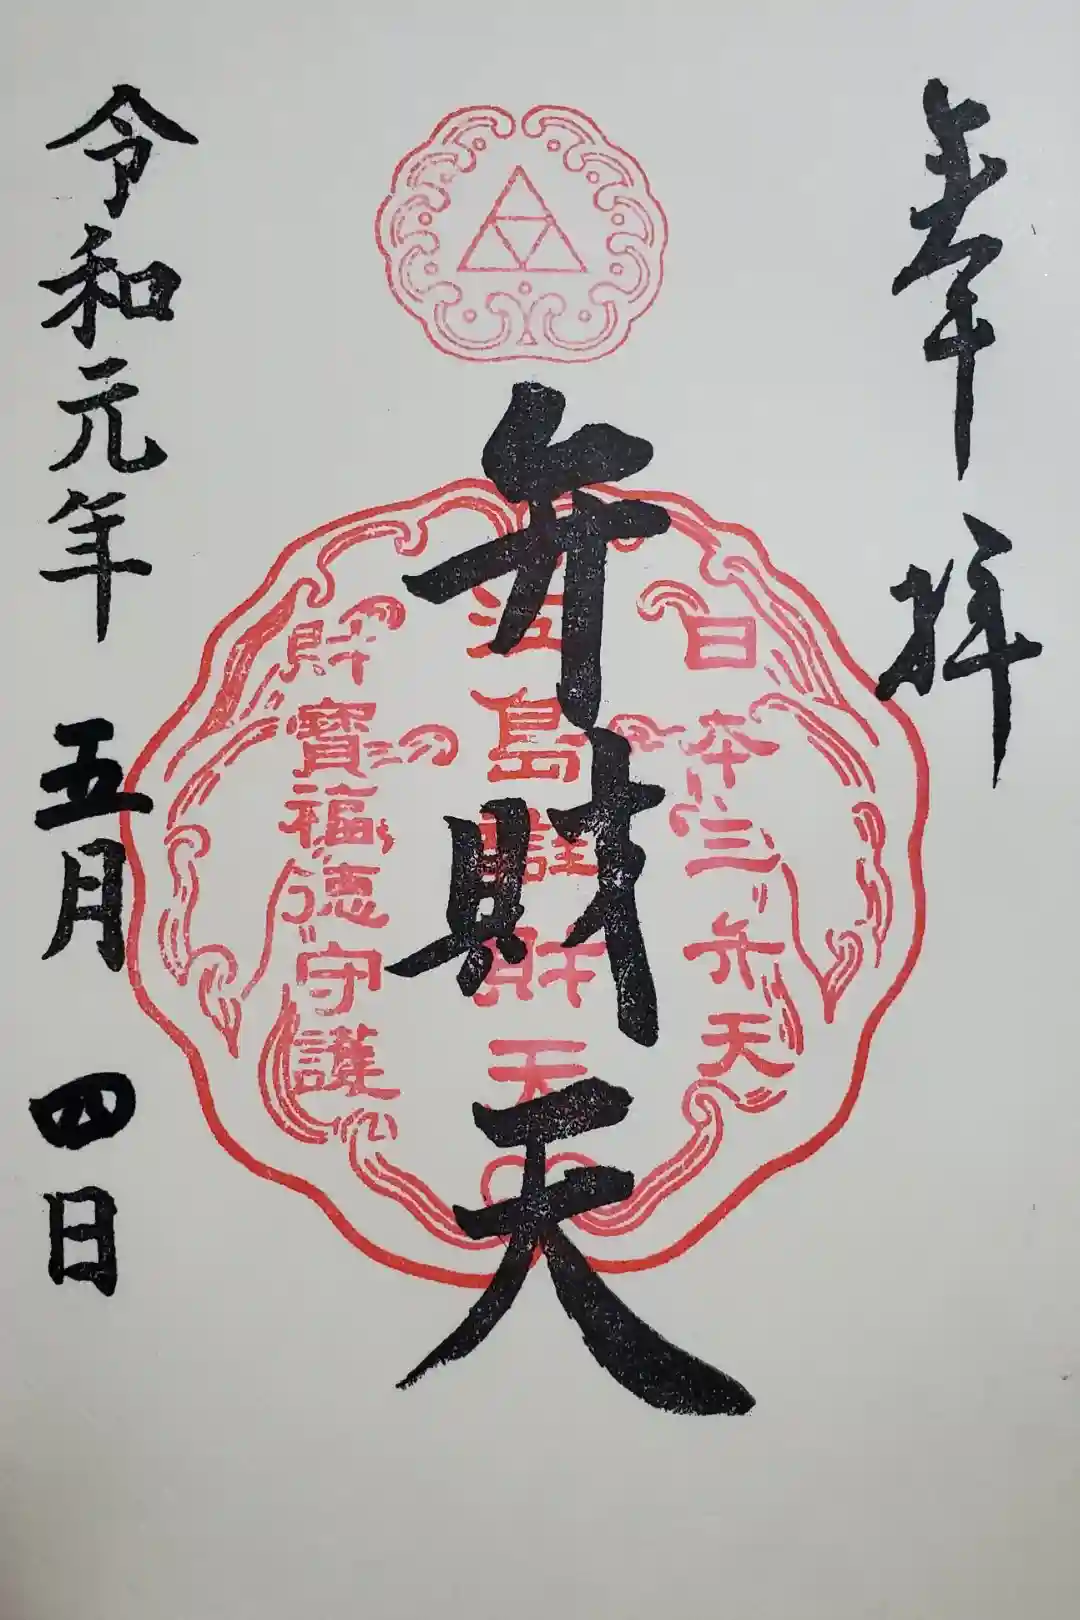 奉拝
日本三弁天
江島辯財天
財宝福徳守護
弁財天
令和元年 五月 四日